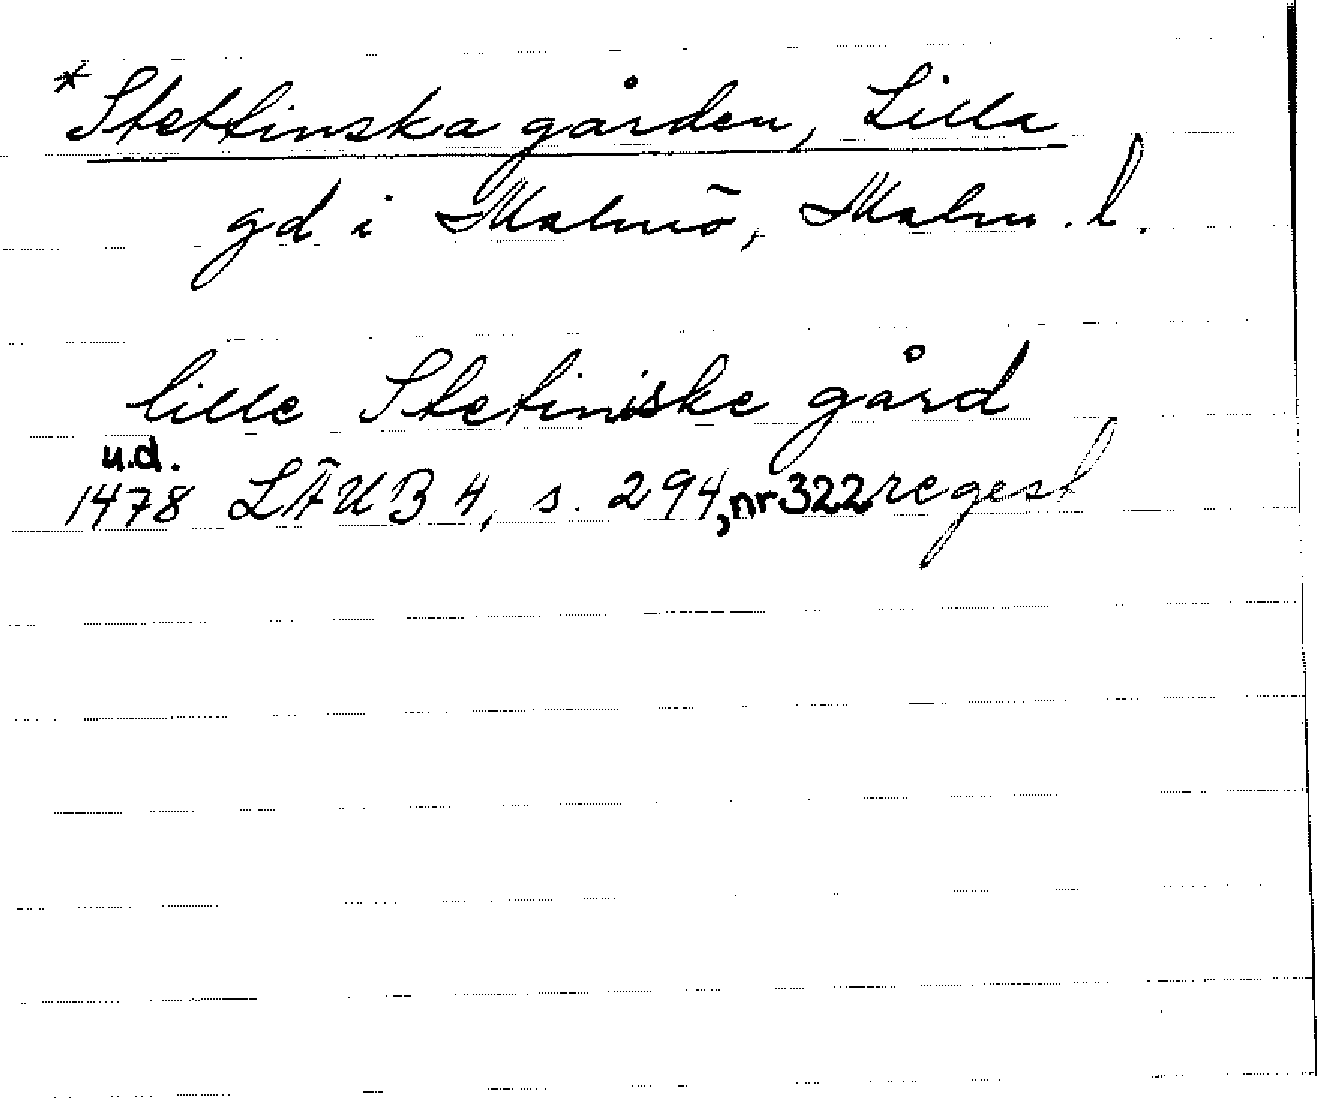 *Stettinska gården, Lilla
gd i Malmö, Malm. l.
lille Stetiniske gård
u.d.
1478 LÄUB 4, s. 294, nr 322 regest